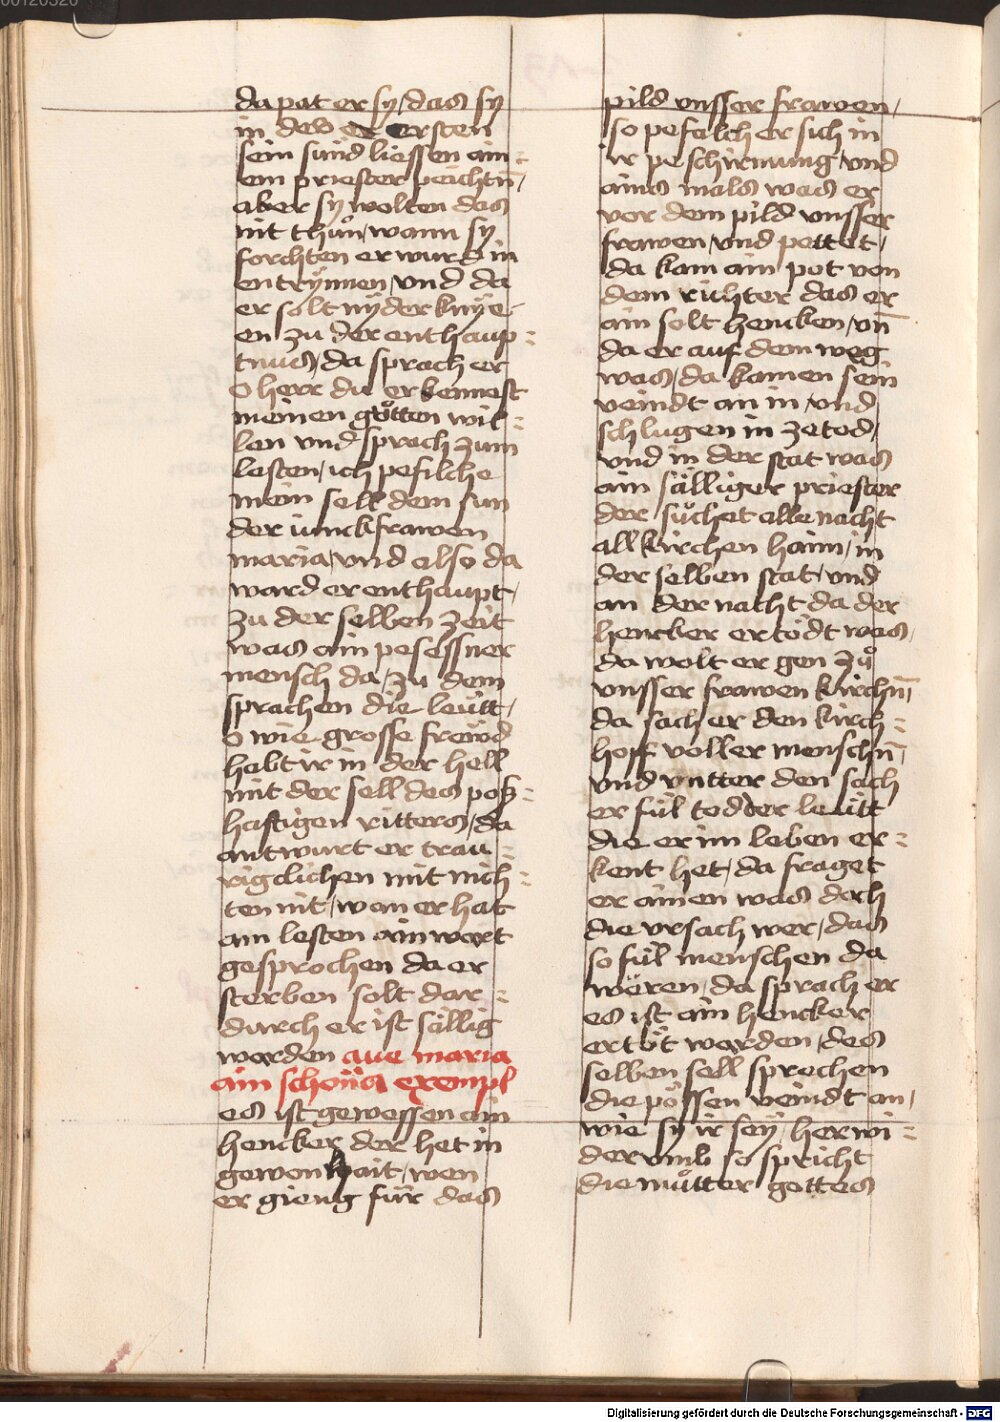 da pat er sy / das sy
in dew er ersten
sein sund liessen ain =
em priester peichtn̄ /
aber sy wolten das
nit thuͦn / wann sy
forchten er wurd in
entrÿnnen / vnd da
er solt nÿder knÿe =
en zu der enthaup =
tnus / da sprach er
o herr du erkennest
meinen guͦtten wil =
len vnd sprach zum
lesten / ich pefilche
mein sell dem sun
der iunckfrawen
maria / vnd also da
ward er enthaupt /
zu der selben zeit
was ain pesessner
mensch da / zu dem
sprachen die leütt /
o wie grosse frewd
habt ir in der hell
mit der sell des poß =
haftigen ritters / da
antwurt er trau =
rigclichen mit nich =
ten nit / wan er hat
am lesten ain wort
gesprochen da er
sterben solt dar =
durch er ist sällig
worden aue maria
ain schons exempl
es ist gewessen ain
hencker der het in
gewonhait / wen
er gieng für das
pild vnsser frawen /
so pefalch er sich in
ir peschirmung / vnd
ains mals was er
vor dem pild vnsser
frawen / vnd pettet /
da kam ain pot von
dem richter das er
ain solt hencken / vn̄
da er auf dem weg
was / da kamen sein
veindt an in / vnd
schlugen in ze tod /
vnd in der stat was
ain sälliger priester
der suͦchet alle nacht
all kirchen haim / in
der selben stat / vnd
an der nacht da der
hencker ertödt was /
da wolt er gen zuͦ
vnsser frawen kirchn̄ /
da sach er den kirch =
hoff voller menschn̄ /
vnd vntter den sach
er fül todder leütt
die er im leben er =
kent het / da fraget
er ainen was doch
die vrsach wer / das
so fül menschen da
wären / da sprach er
es ist ain hencker
ertöt worden / des
selben sell sprechen
die pössen veindt an /
wie sy ir seÿ / herwi =
dervmb so spricht
die muͦtter gottes
Digitalisierung gefördert durch die Deutsche Forschungsgemeinschaft - DFG